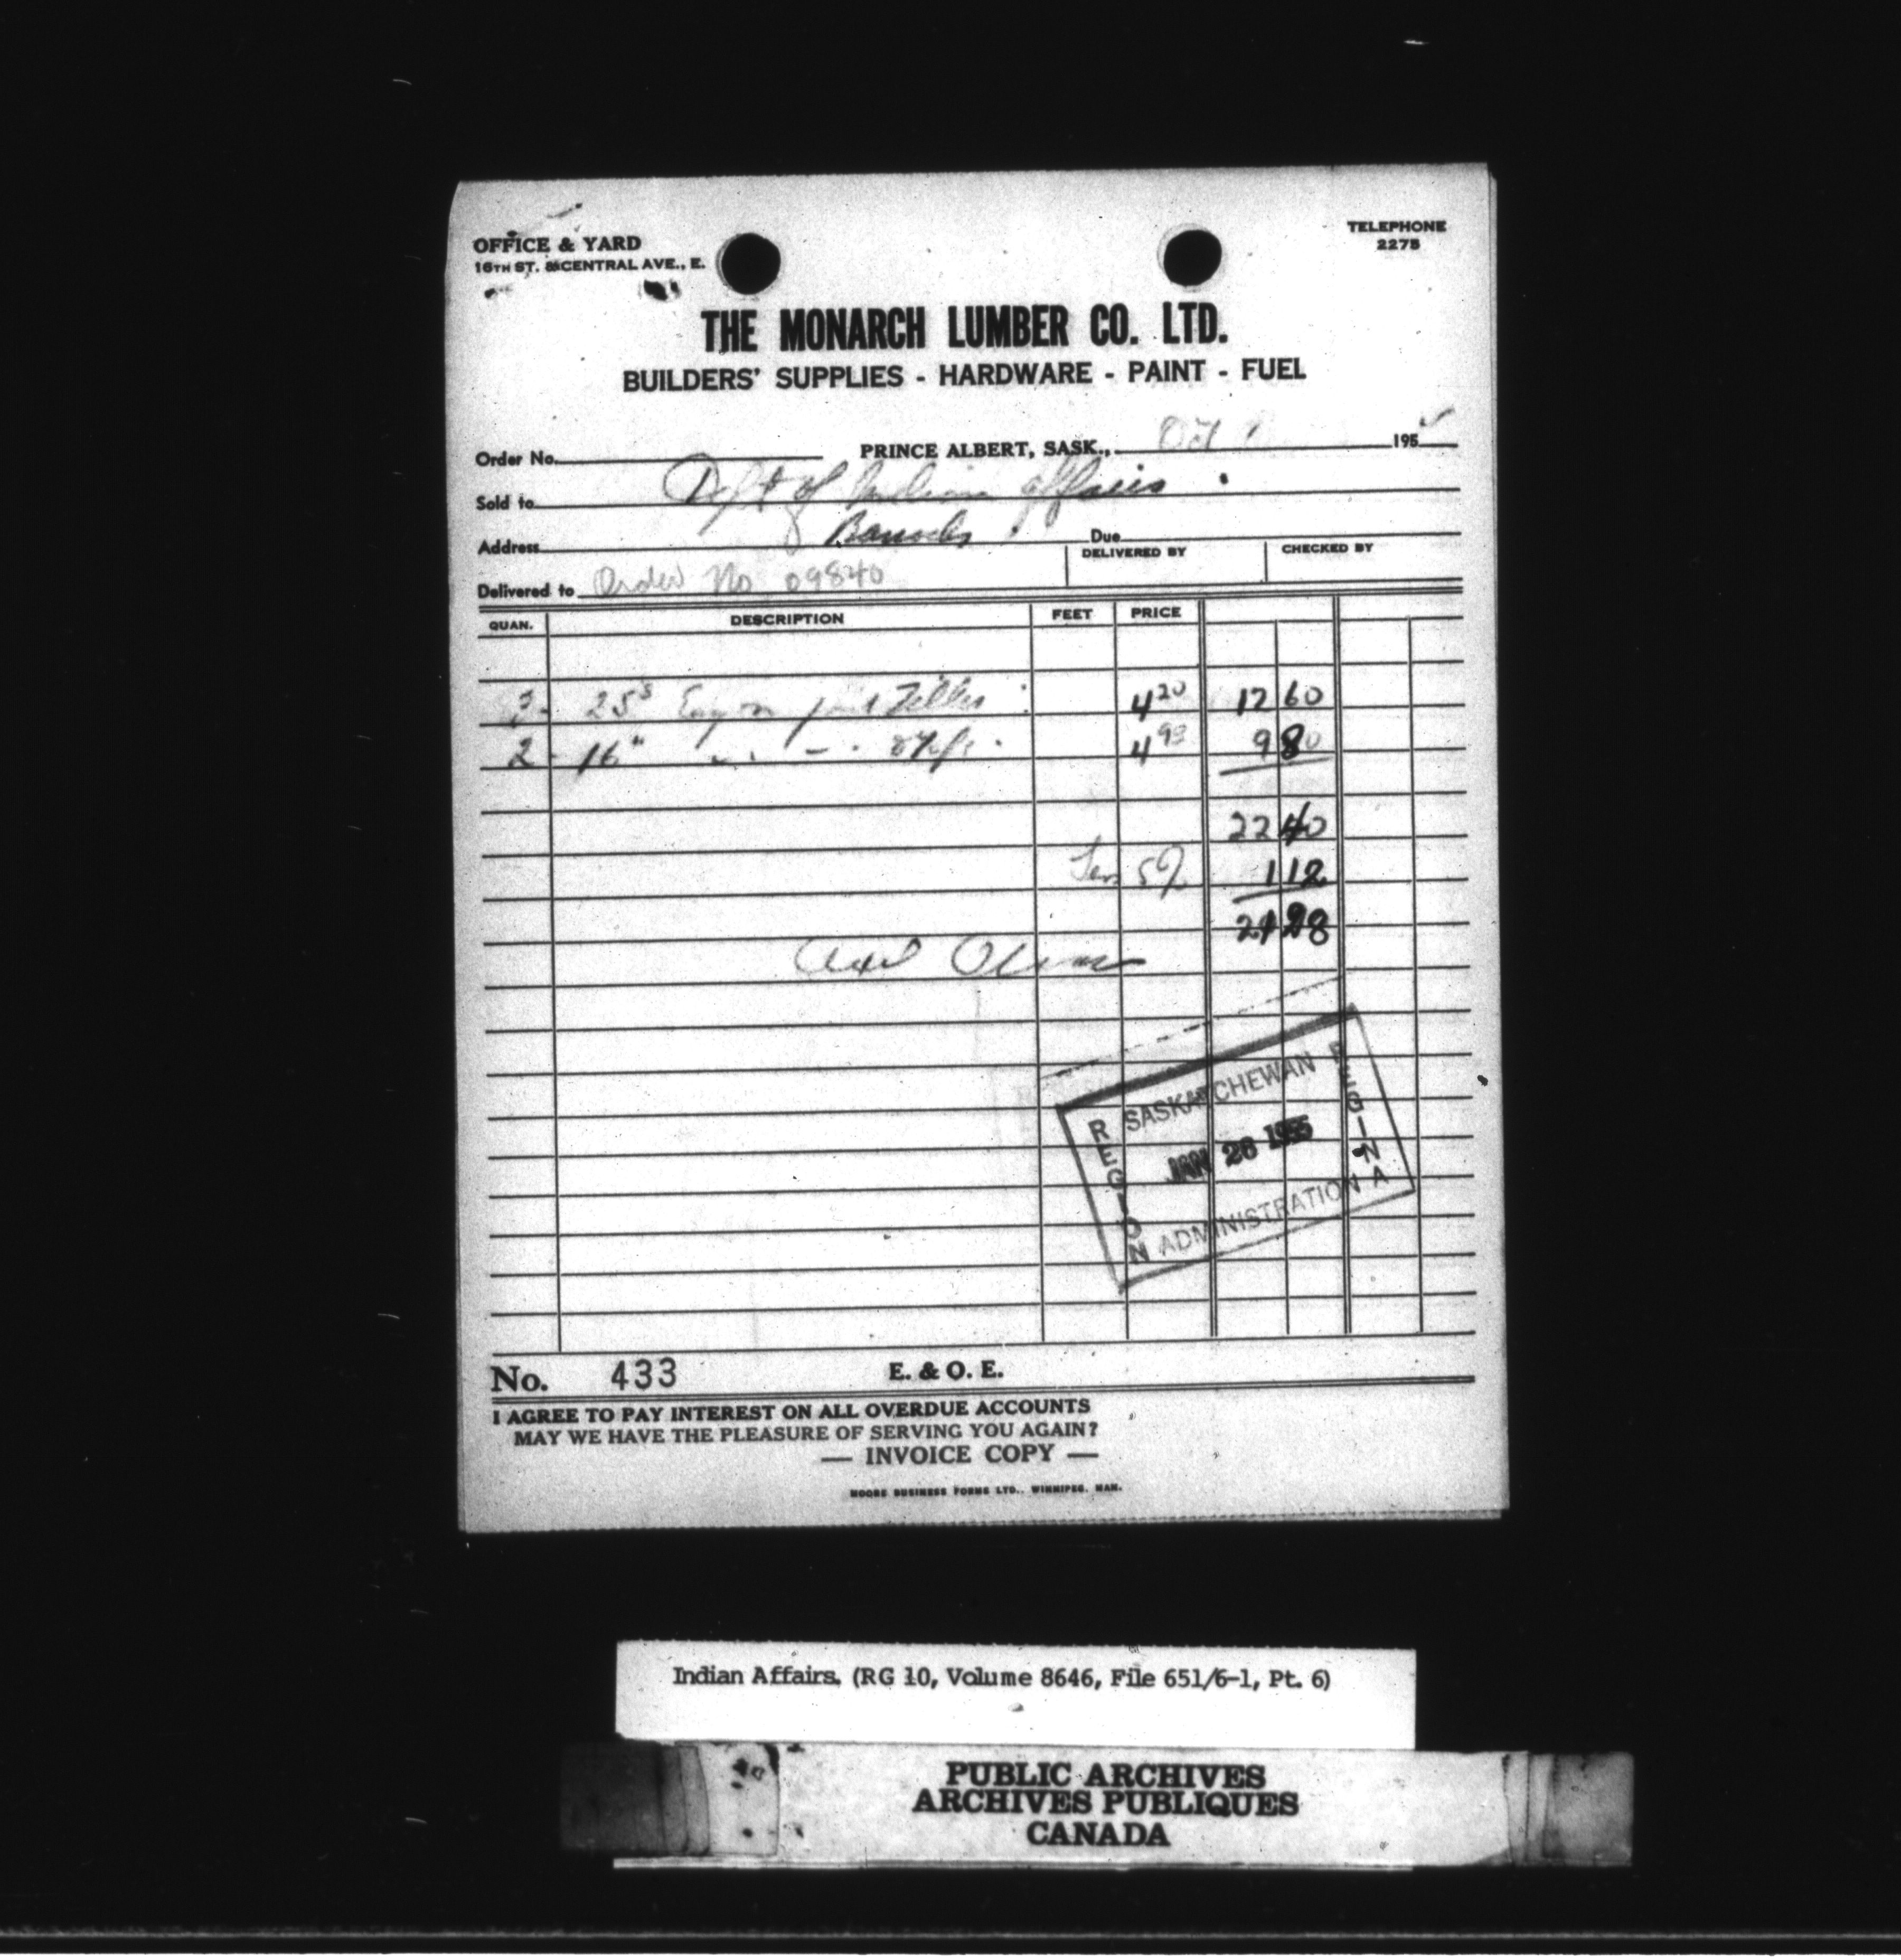 OFFICE & YARD
16TH ST. & CENTRAL AVE., E.
TELEPHONE
2275
THE MONARCH LUMBER CO. LTD.
BUILDERS' SUPPLIES - HARDWARE - PAINT - FUEL
Order No. PRINCE ALBERT, SASK., Oct 195
Sold to Dept of Indian Affairs
Address Due
DELIVERED BY CHECKED BY
Delivered to Order No 09840
QUAN. DESCRIPTION FEET PRICE
3 - 25s Filler 4 20 12 60
2 - 16" 9 80
22 40
Less 5% 1 12
21 28
Axel Olsen
SASKATCHEWAN
REGION
REGINA
JAN 26 1955
ADMINISTRATION
No. 433 E. & O. E.
I AGREE TO PAY INTEREST ON ALL OVERDUE ACCOUNTS
MAY WE HAVE THE PLEASURE OF SERVING YOU AGAIN?
— INVOICE COPY —
MOORE BUSINESS FORMS LTD., WINNIPEG, MAN.
Indian Affairs. (RG 10, Volume 8646, File 651/6-1, Pt. 6)
PUBLIC ARCHIVES
ARCHIVES PUBLIQUES
CANADA